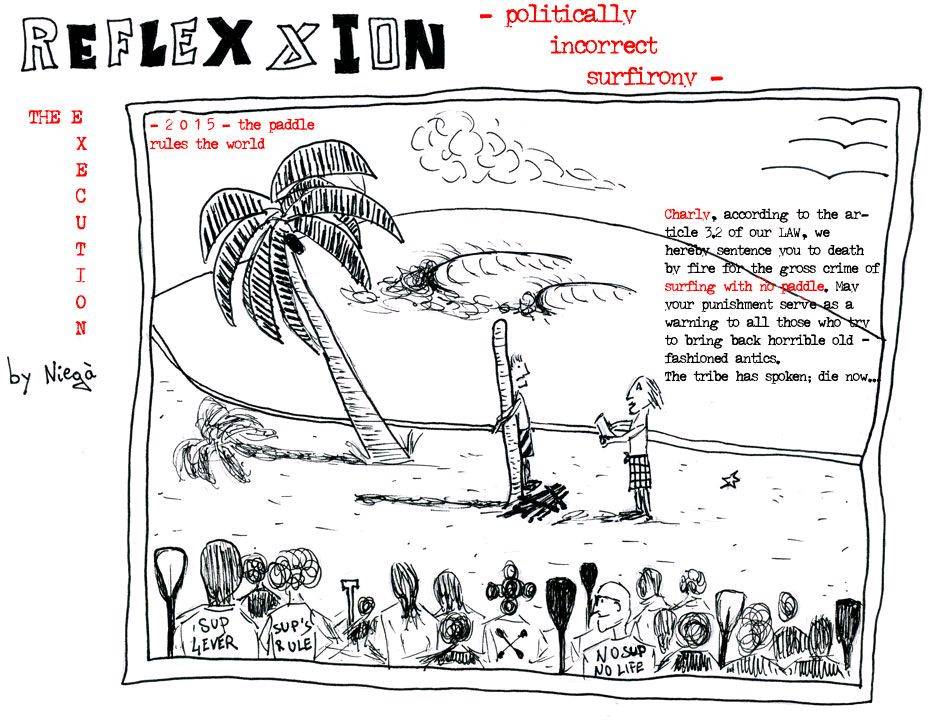 REFLEXXION
- politically
incorrect
surfirony -
THE EXECUTION
by Niegà
- 2 0 1 5 - the paddle
rules the world
Charly, according to the ar-
ticle 3,2 of our LAW, we
hereby sentence you to death
by fire for the gross crime of
surfing with no paddle. May
your punishment serve as a
warning to all those who try
to bring back horrible old -
fashioned antics.
The tribe has spoken; die now...
SUP
4EVER
SUP'S
RULE
NO SUP
NO LIFE